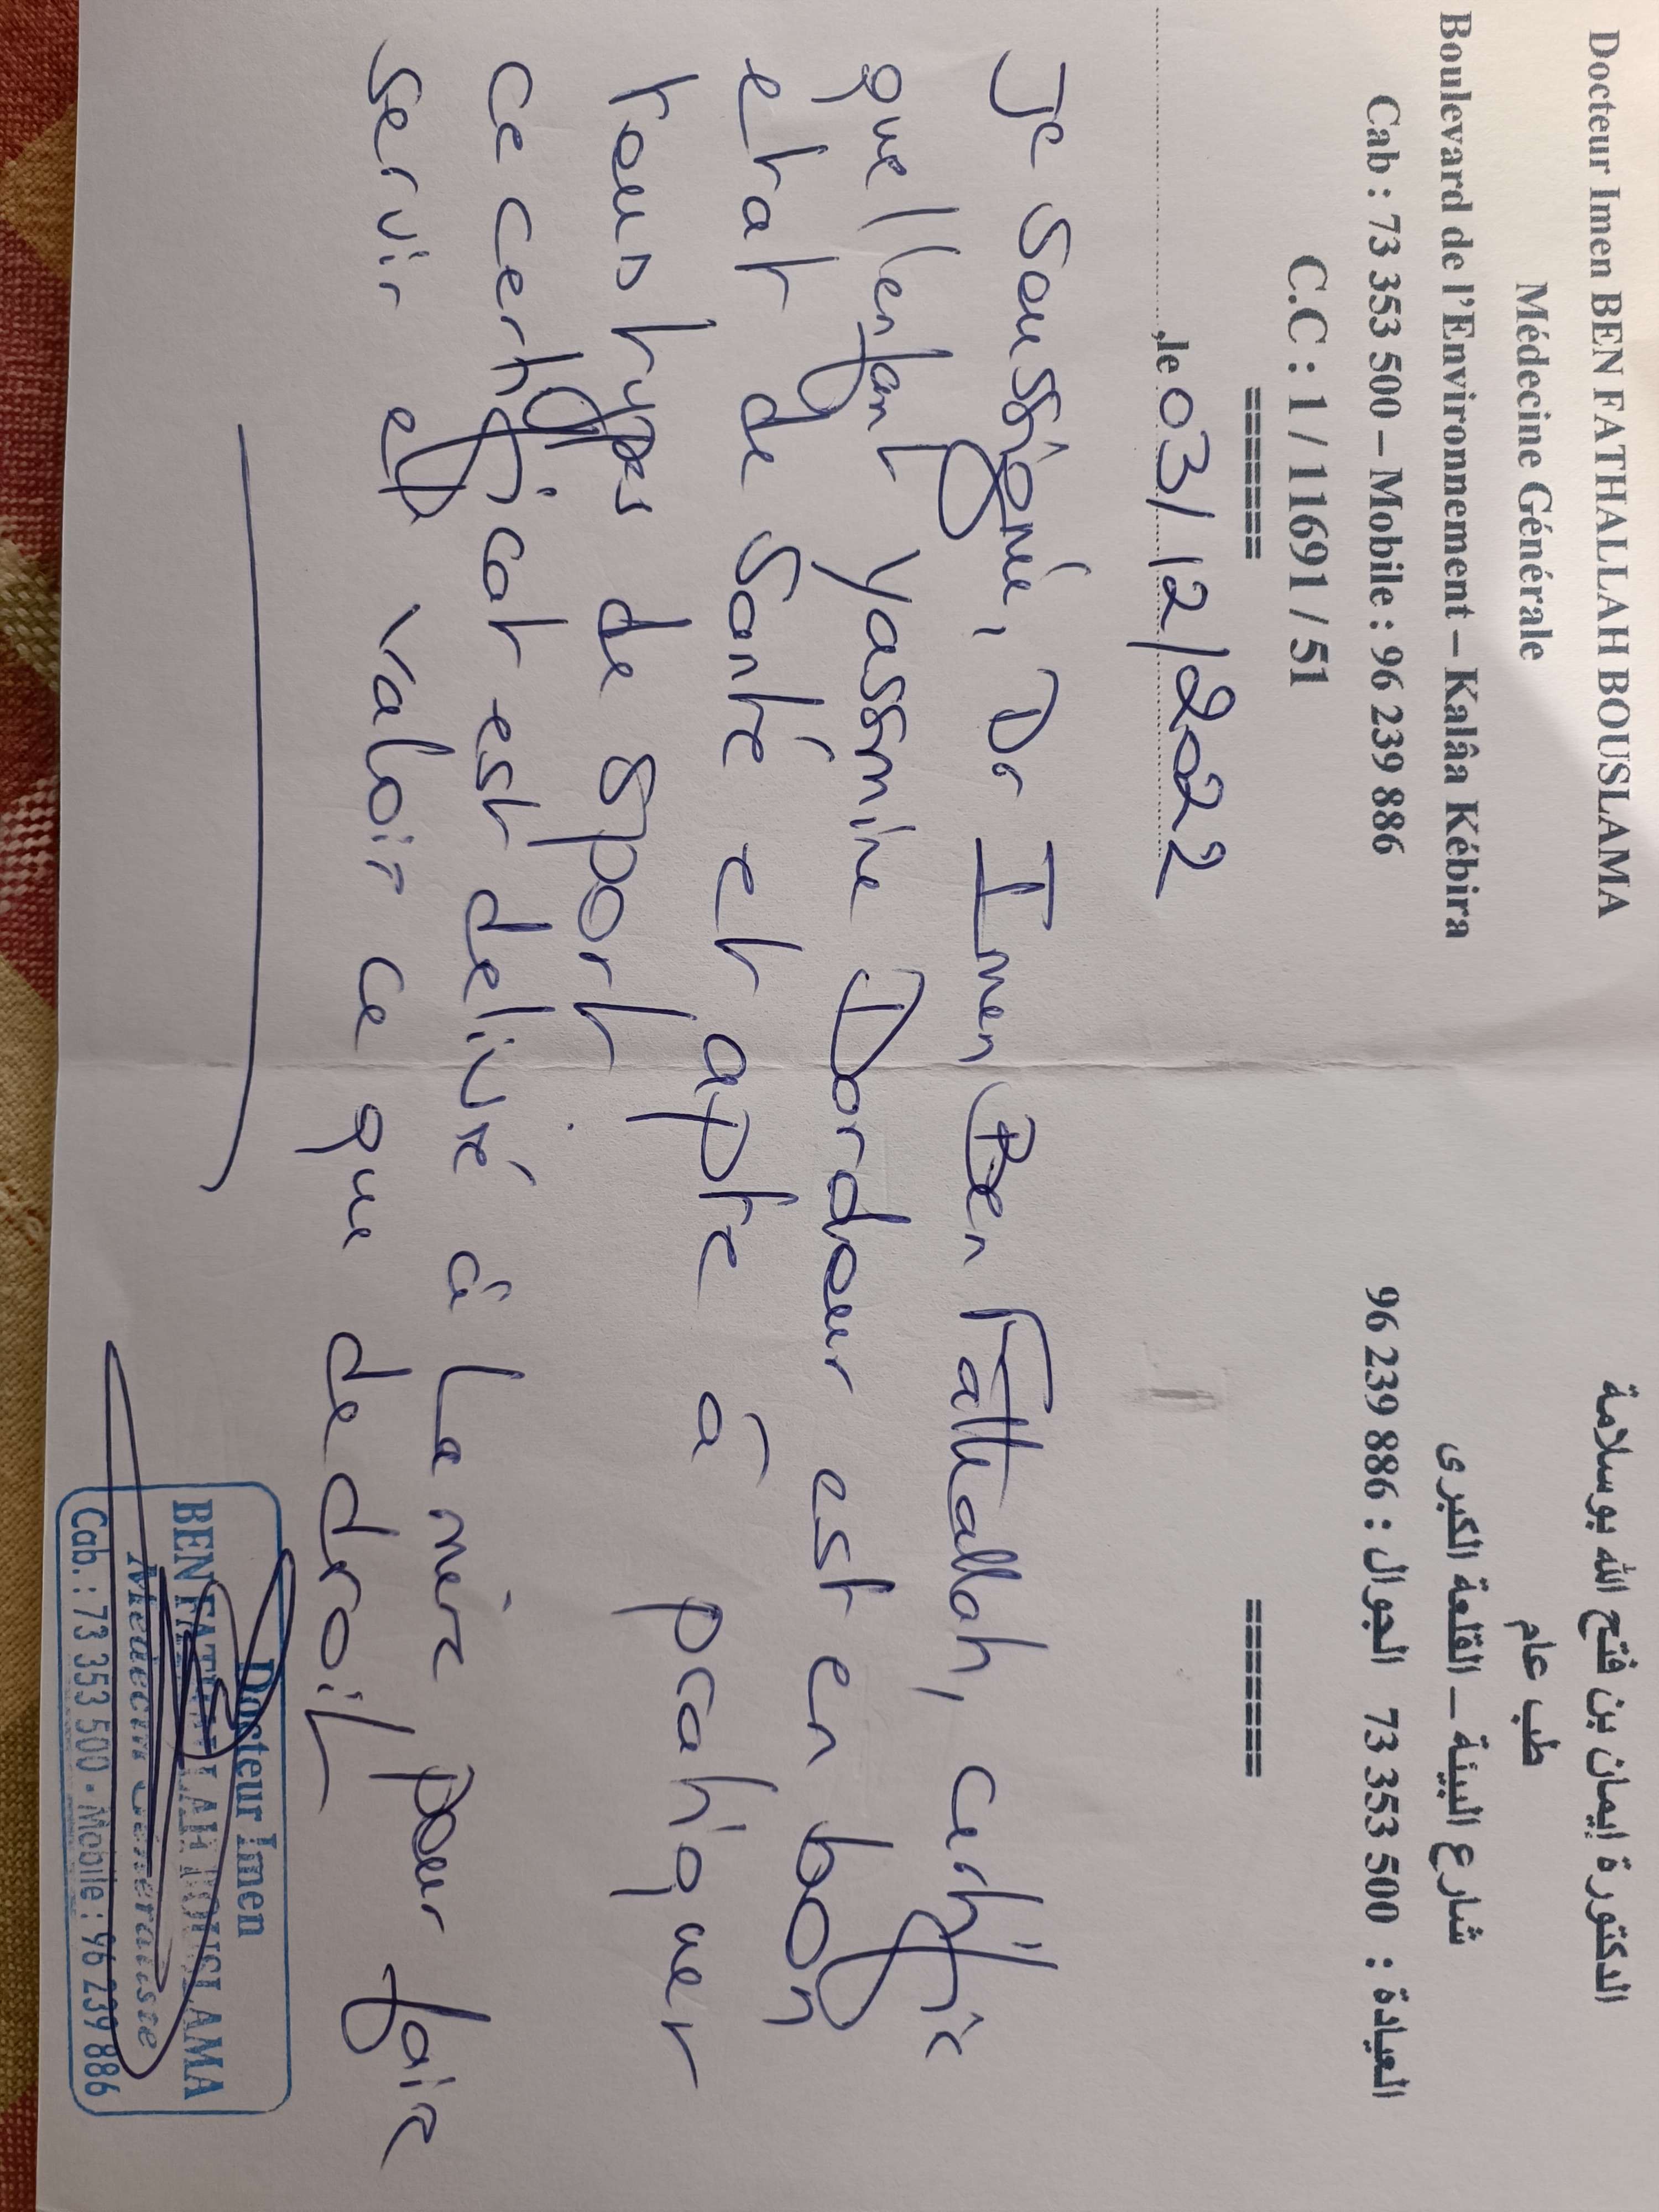 Docteur Imen BEN FATHALLAH BOUSLAMA
Médecine Générale
Boulevard de l'Environnement – Kalâa Kébira
Cab : 73 353 500 – Mobile : 96 239 886
C.C : 1 / 11691 / 51
======
الدكتورة إيمان بن فتح الله بوسلامة
طب عام
شارع البيئة – القلعة الكبرى
العيادة : 73 353 500 الجوال : 96 239 886
======
,le 03/12/2022
Je soussignée, Dr Imen Ben Fathallah, certifie
que l'enfant Yassmine Dardour est en bon
etat de santé et apte à pratiquer
tous types de sport
ce certificat est delivré à la mère pour faire
servir et valoir ce que de droit
Docteur Imen
BEN FATHALLAH BOUSLAMA
Médecin Généraliste
Cab. : 73 353 500 - Mobile : 96 239 886